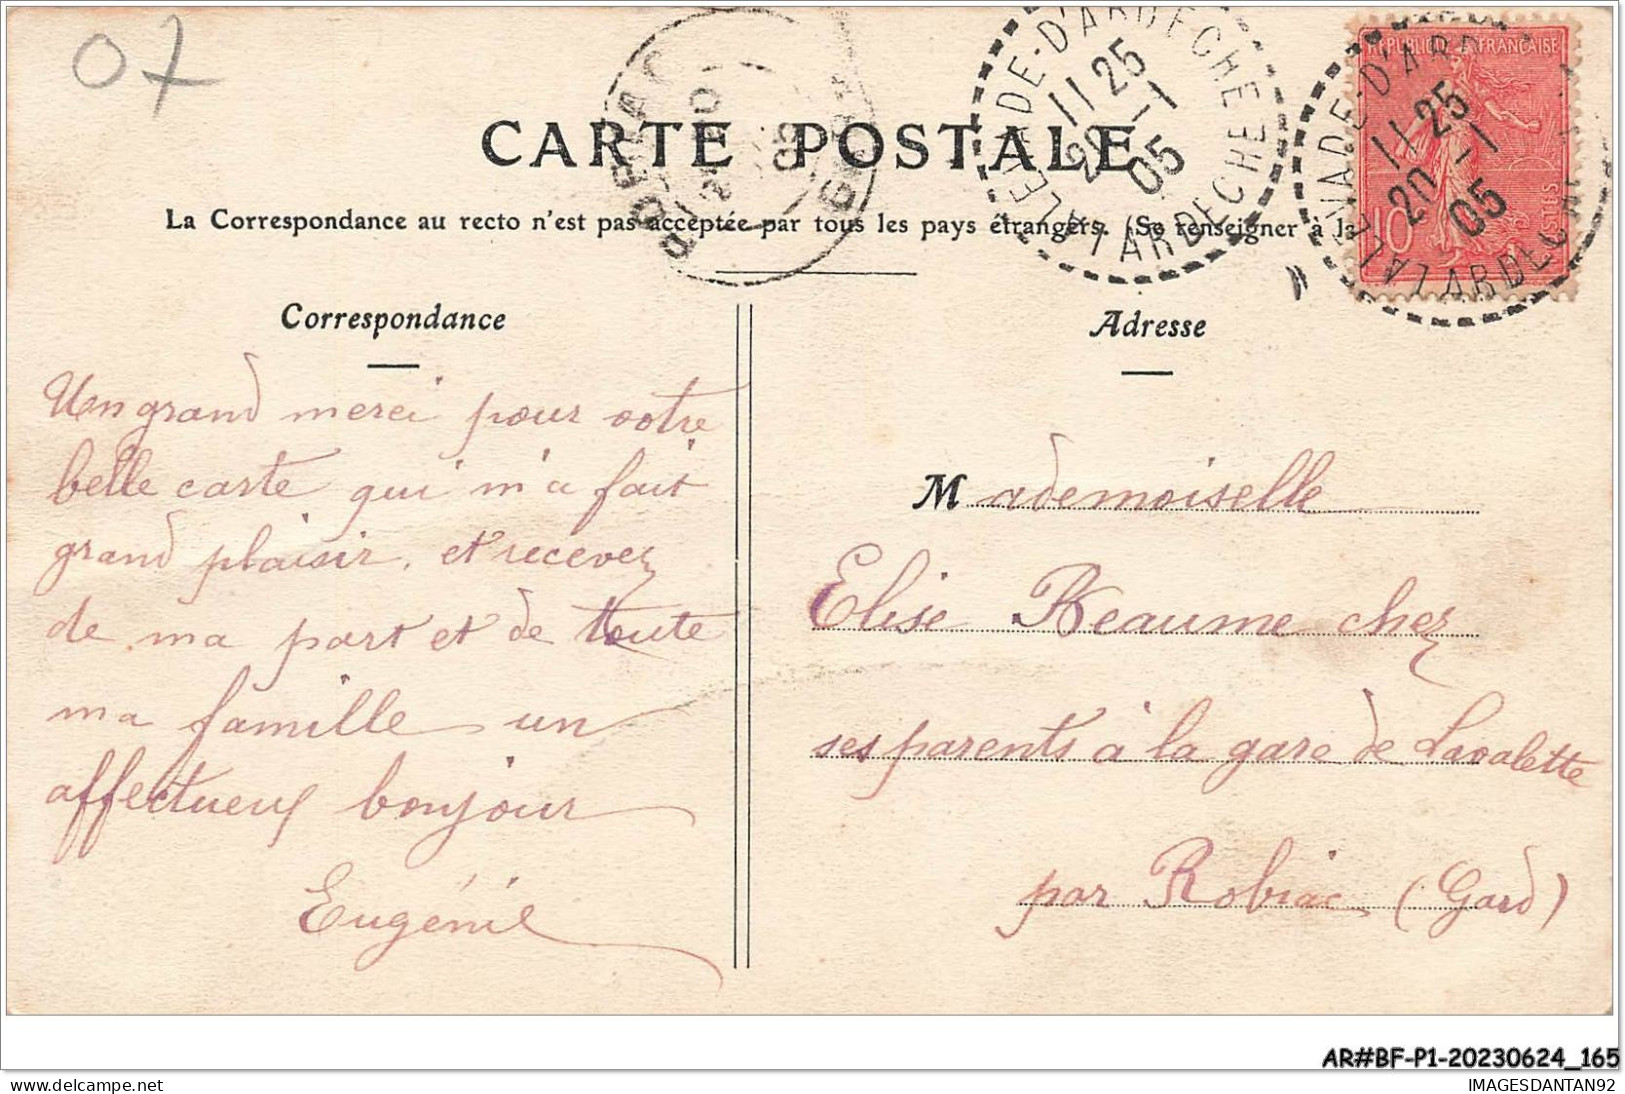 07
CARTE POSTALE
La Correspondance au recto n'est pas acceptée par tous les pays étrangers. (Se renseigner à la
LALEVADE-D'ARDECHE
11 25
20 -1
05
ARDECHE
LALEVADE-D'ARD
11 25
20 -1
05
ARDECHE
REPUBLIQUE FRANCAISE
10
POSTES
ROBIAC
GARD
Correspondance
Adresse
Un grand merci pour votre
belle carte qui m'a fait
grand plaisir, et recevez
de ma part et de toute
ma famille un
affectueux bonjour
Eugénie
Mademoiselle
Elise Beaume chez
ses parents à la gare de Lavalette
par Robiac (Gard)
AR#BF-P1-20230624_165
www.delcampe.net
IMAGESDANTAN92